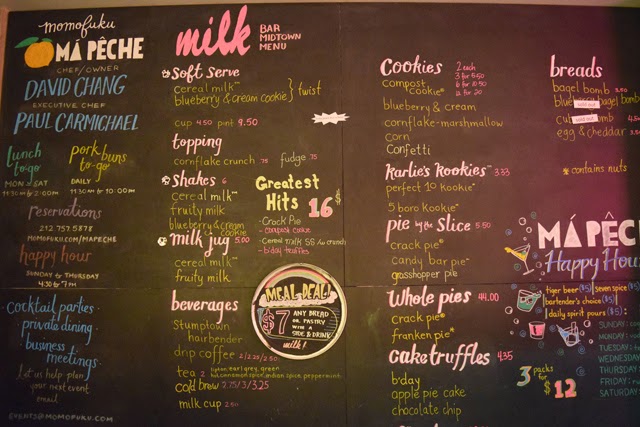 momofuku
MÁ PÊCHE
CHEF/OWNER
DAVID CHANG
EXECUTIVE CHEF
PAUL CARMICHAEL
lunch to-go
MON - SAT
pork buns to-go
DAILY
11:30 AM to 10:00 PM
reservations
212.757.5878
MOMOFUKU.COM/MAPECHE
happy hour
SUNDAY to THURSDAY
4:30 to 7 PM
cocktail parties
private dining
business meetings
Let us help plan
your next event
email
EVENTS@MOMOFUKU.COM
milk BAR
MIDTOWN
MENU
soft serve
cereal milk™
blueberry & cream cookie } twist
cup 4.50 pint 9.50
topping
cornflake crunch .75 fudge .75
shakes 6
cereal milk™
fruity milk
blueberry & cream cookie
milk jug 5.00
cereal milk™
fruity milk
Greatest Hits $16
- Crack Pie
- compost cookie
- b'day truffles
beverages
Stumptown
hairbender
drip coffee 2/2.25/2.50
tea 2 lipton, earl grey, green
cold brew 2.75/3/3.25
milk cup 2.50
MEAL DEAL!
$7 ANY BREAD
OR PASTRY
WITH A
SIDE & DRINK
milk!
Cookies 2 each
compost cookie®
blueberry & cream
cornflake-marshmallow
corn
Confetti
Karlie's Kookies™ 3.33
perfect 10 kookie™
5 boro Kookie™
pie by the slice 5.50
crack pie®
candy bar pie™
grasshopper pie
Whole pies 44.00
crack pie®
franken pie®
cake truffles 4.35
b'day
apple pie cake
chocolate chip
3 packs for $12
breads
bagel bomb
bagel bomb
egg & cheddar
* contains nuts
MÁ PÊCHE
Happy Hour
tiger beer ($5) seven spice
bartender's choice ($5)
daily spirit pours ($5)
SUNDAY:
MONDAY:
TUESDAY:
WEDNESDAY
THURSDAY:
FRIDAY:
SATURDAY: